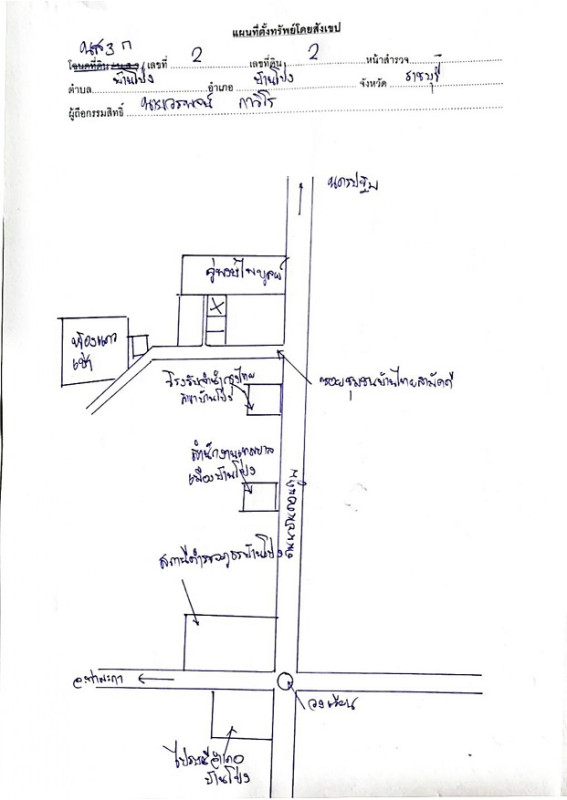 แผนที่ตั้งทรัพย์โดยสังเขป
นส3ก
โฉนดที่ดิน เลขที่ 2 เลขที่ดิน 2 หน้าสำรวจ
ตำบล บ้านโป่ง อำเภอ บ้านโป่ง จังหวัด ราชบุรี
ผู้ถือกรรมสิทธิ์
นครปฐม
ห้องแถว
เช่า
โรงรับจำนำ
สาขาบ้านโป่ง
ซอยชุมชนบ้านไทยสามัคคี
สำนักงานเทศบาล
เมืองบ้านโป่ง
สถานีตำรวจภูธรบ้านโป่ง
อ.ท่ามะกา
วงเวียน
ไปรษณีย์อำเภอ
บ้านโป่ง